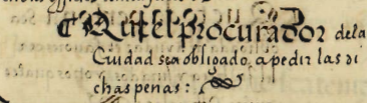 Que el procurador dela
Cuidad sea obligado, a pedir las di
chas penas: